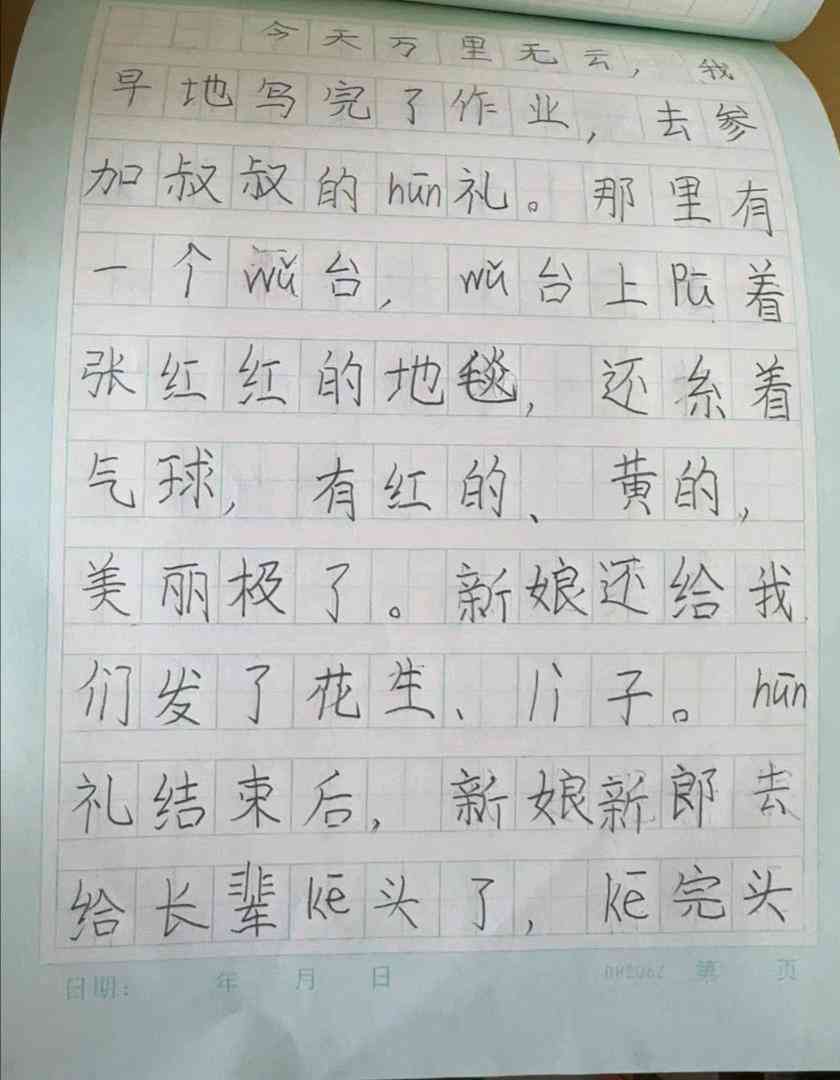 今天万里无云，我
早地写完了作业，去参
加叔叔的hūn礼。那里有
一个wǔ台，wǔ台上Pū着
张红红的地毯，还系着
气球，有红的、黄的，
美丽极了。新娘还给我
们发了花生、子。hūn
礼结束后，新娘新郎去
给长辈kē头了，kē完头
日期： 年 月 日 第 页